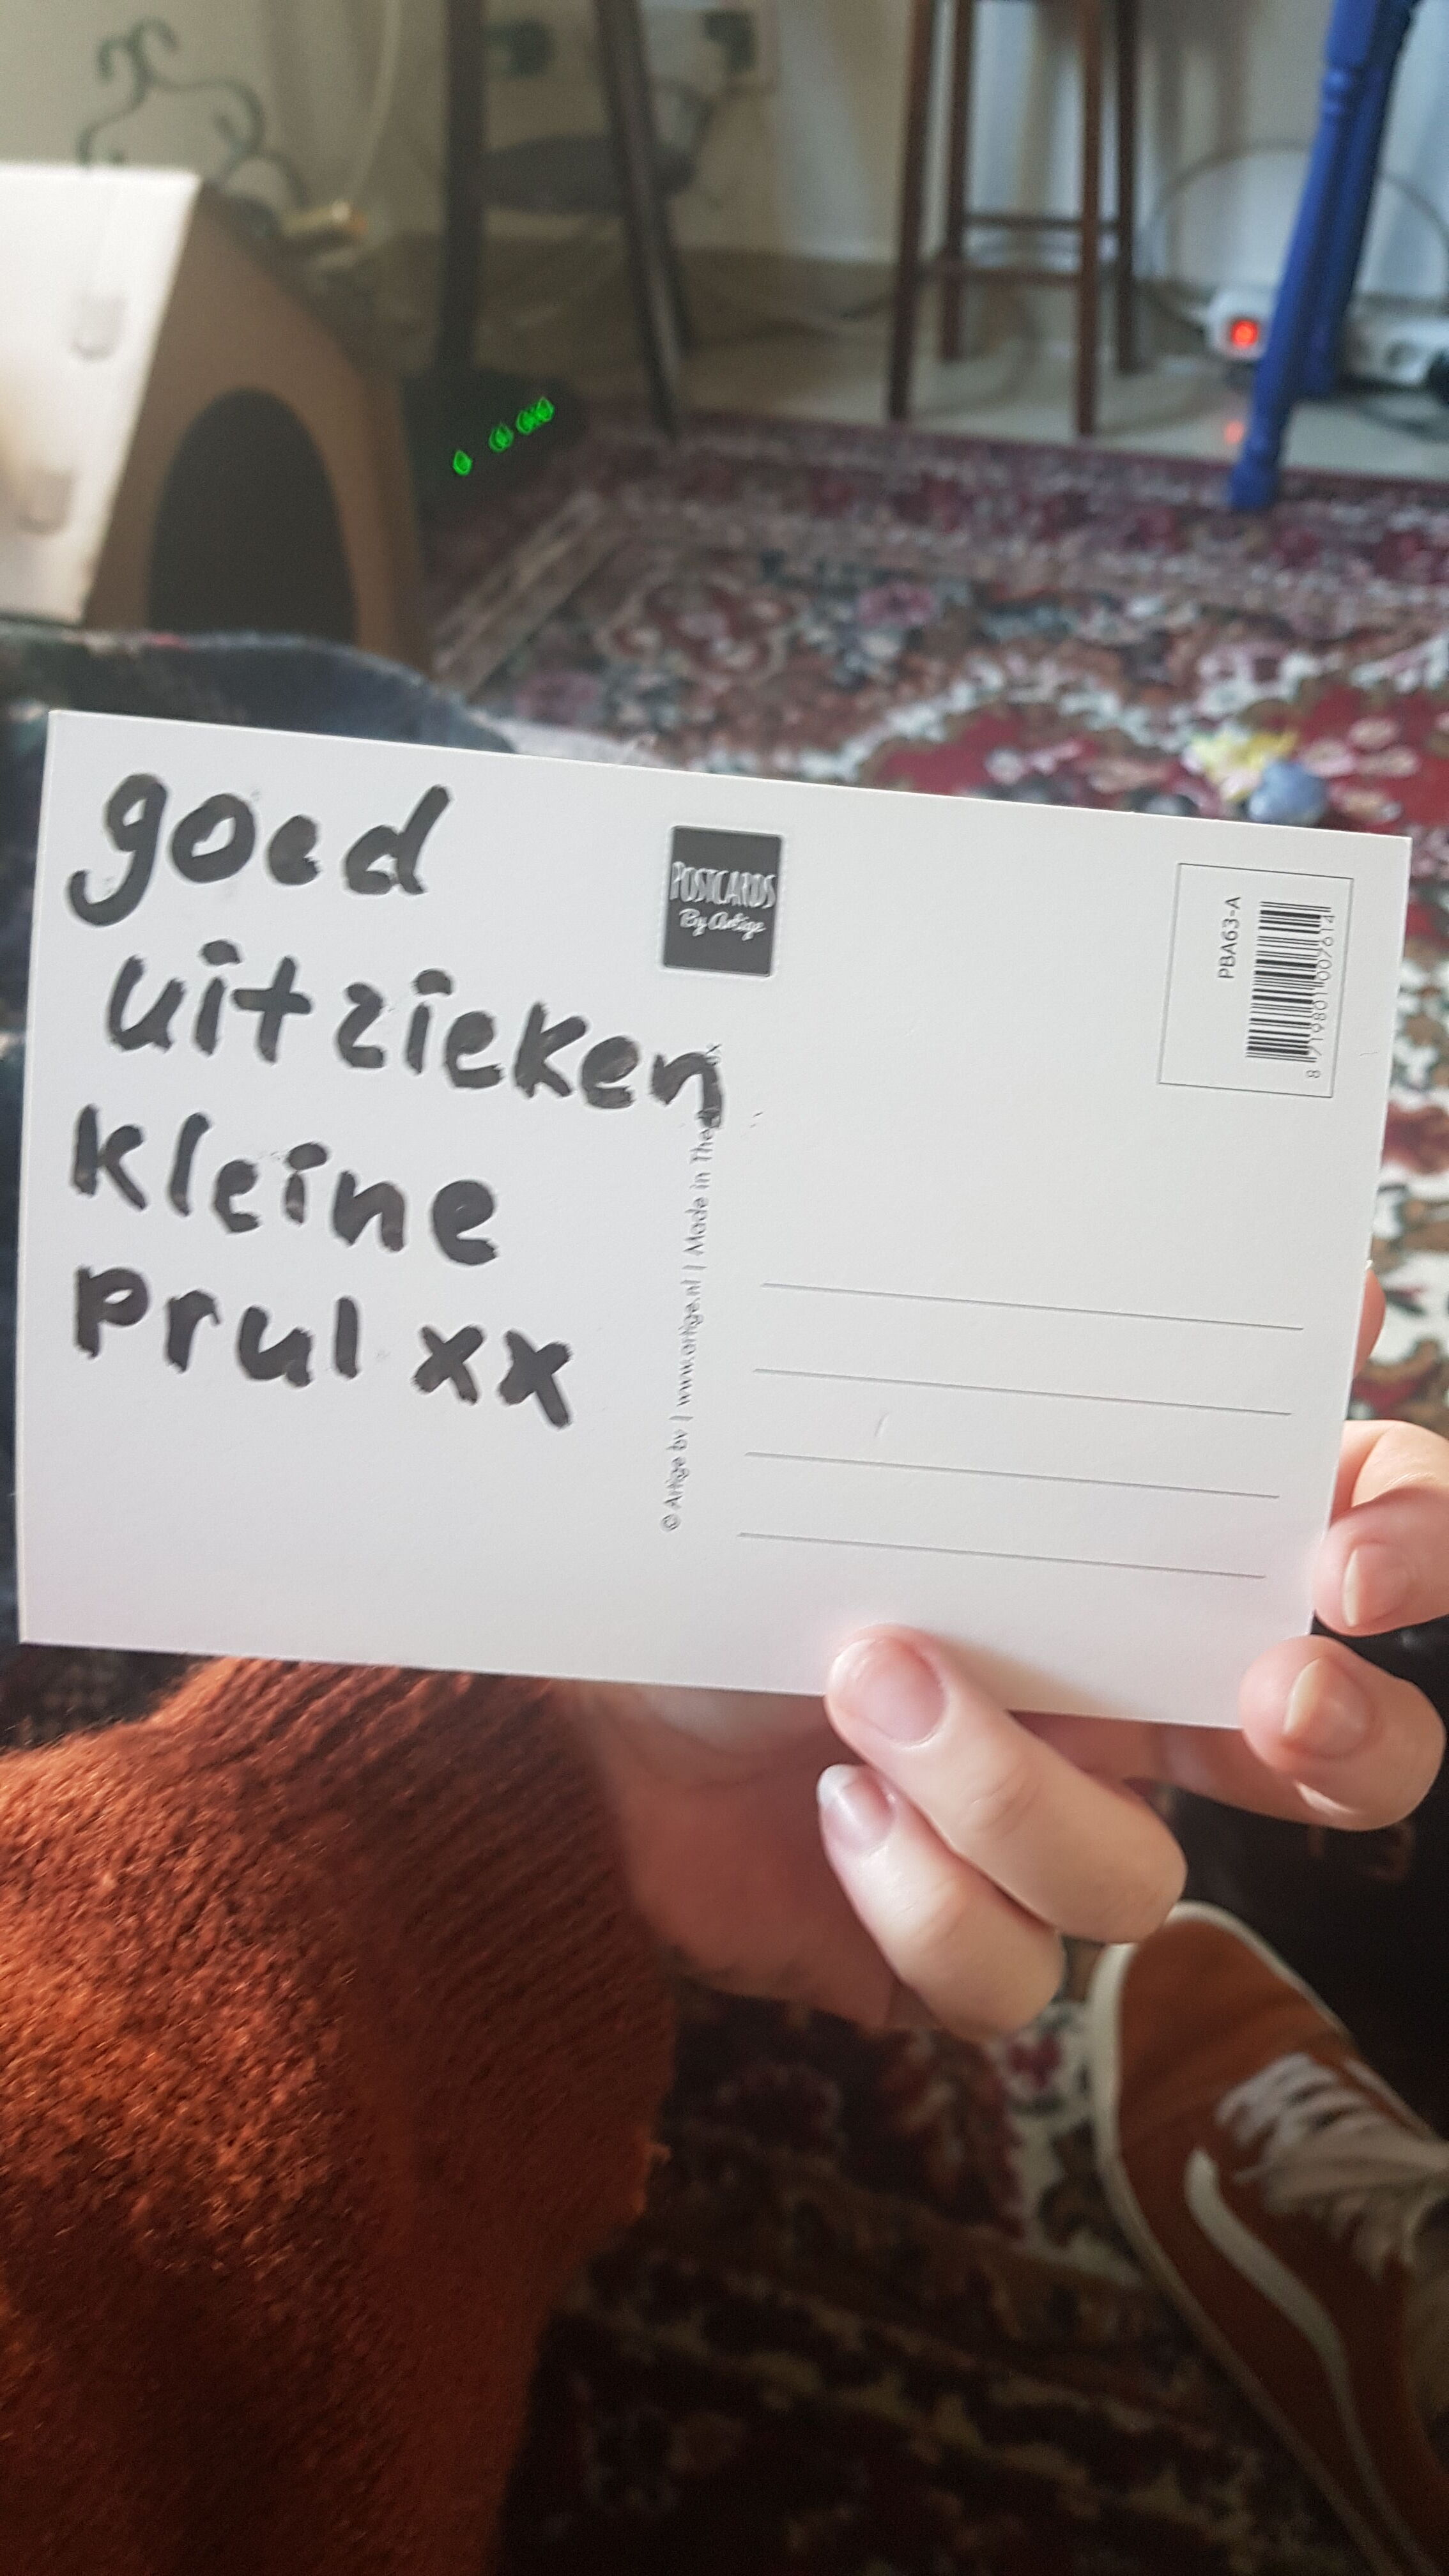 goed
uitzieken
kleine
prul xx
POSTCARDS
By Artige
© Artige bv | www.artige.nl | Made in The
PBA63-A
8 719801 007614